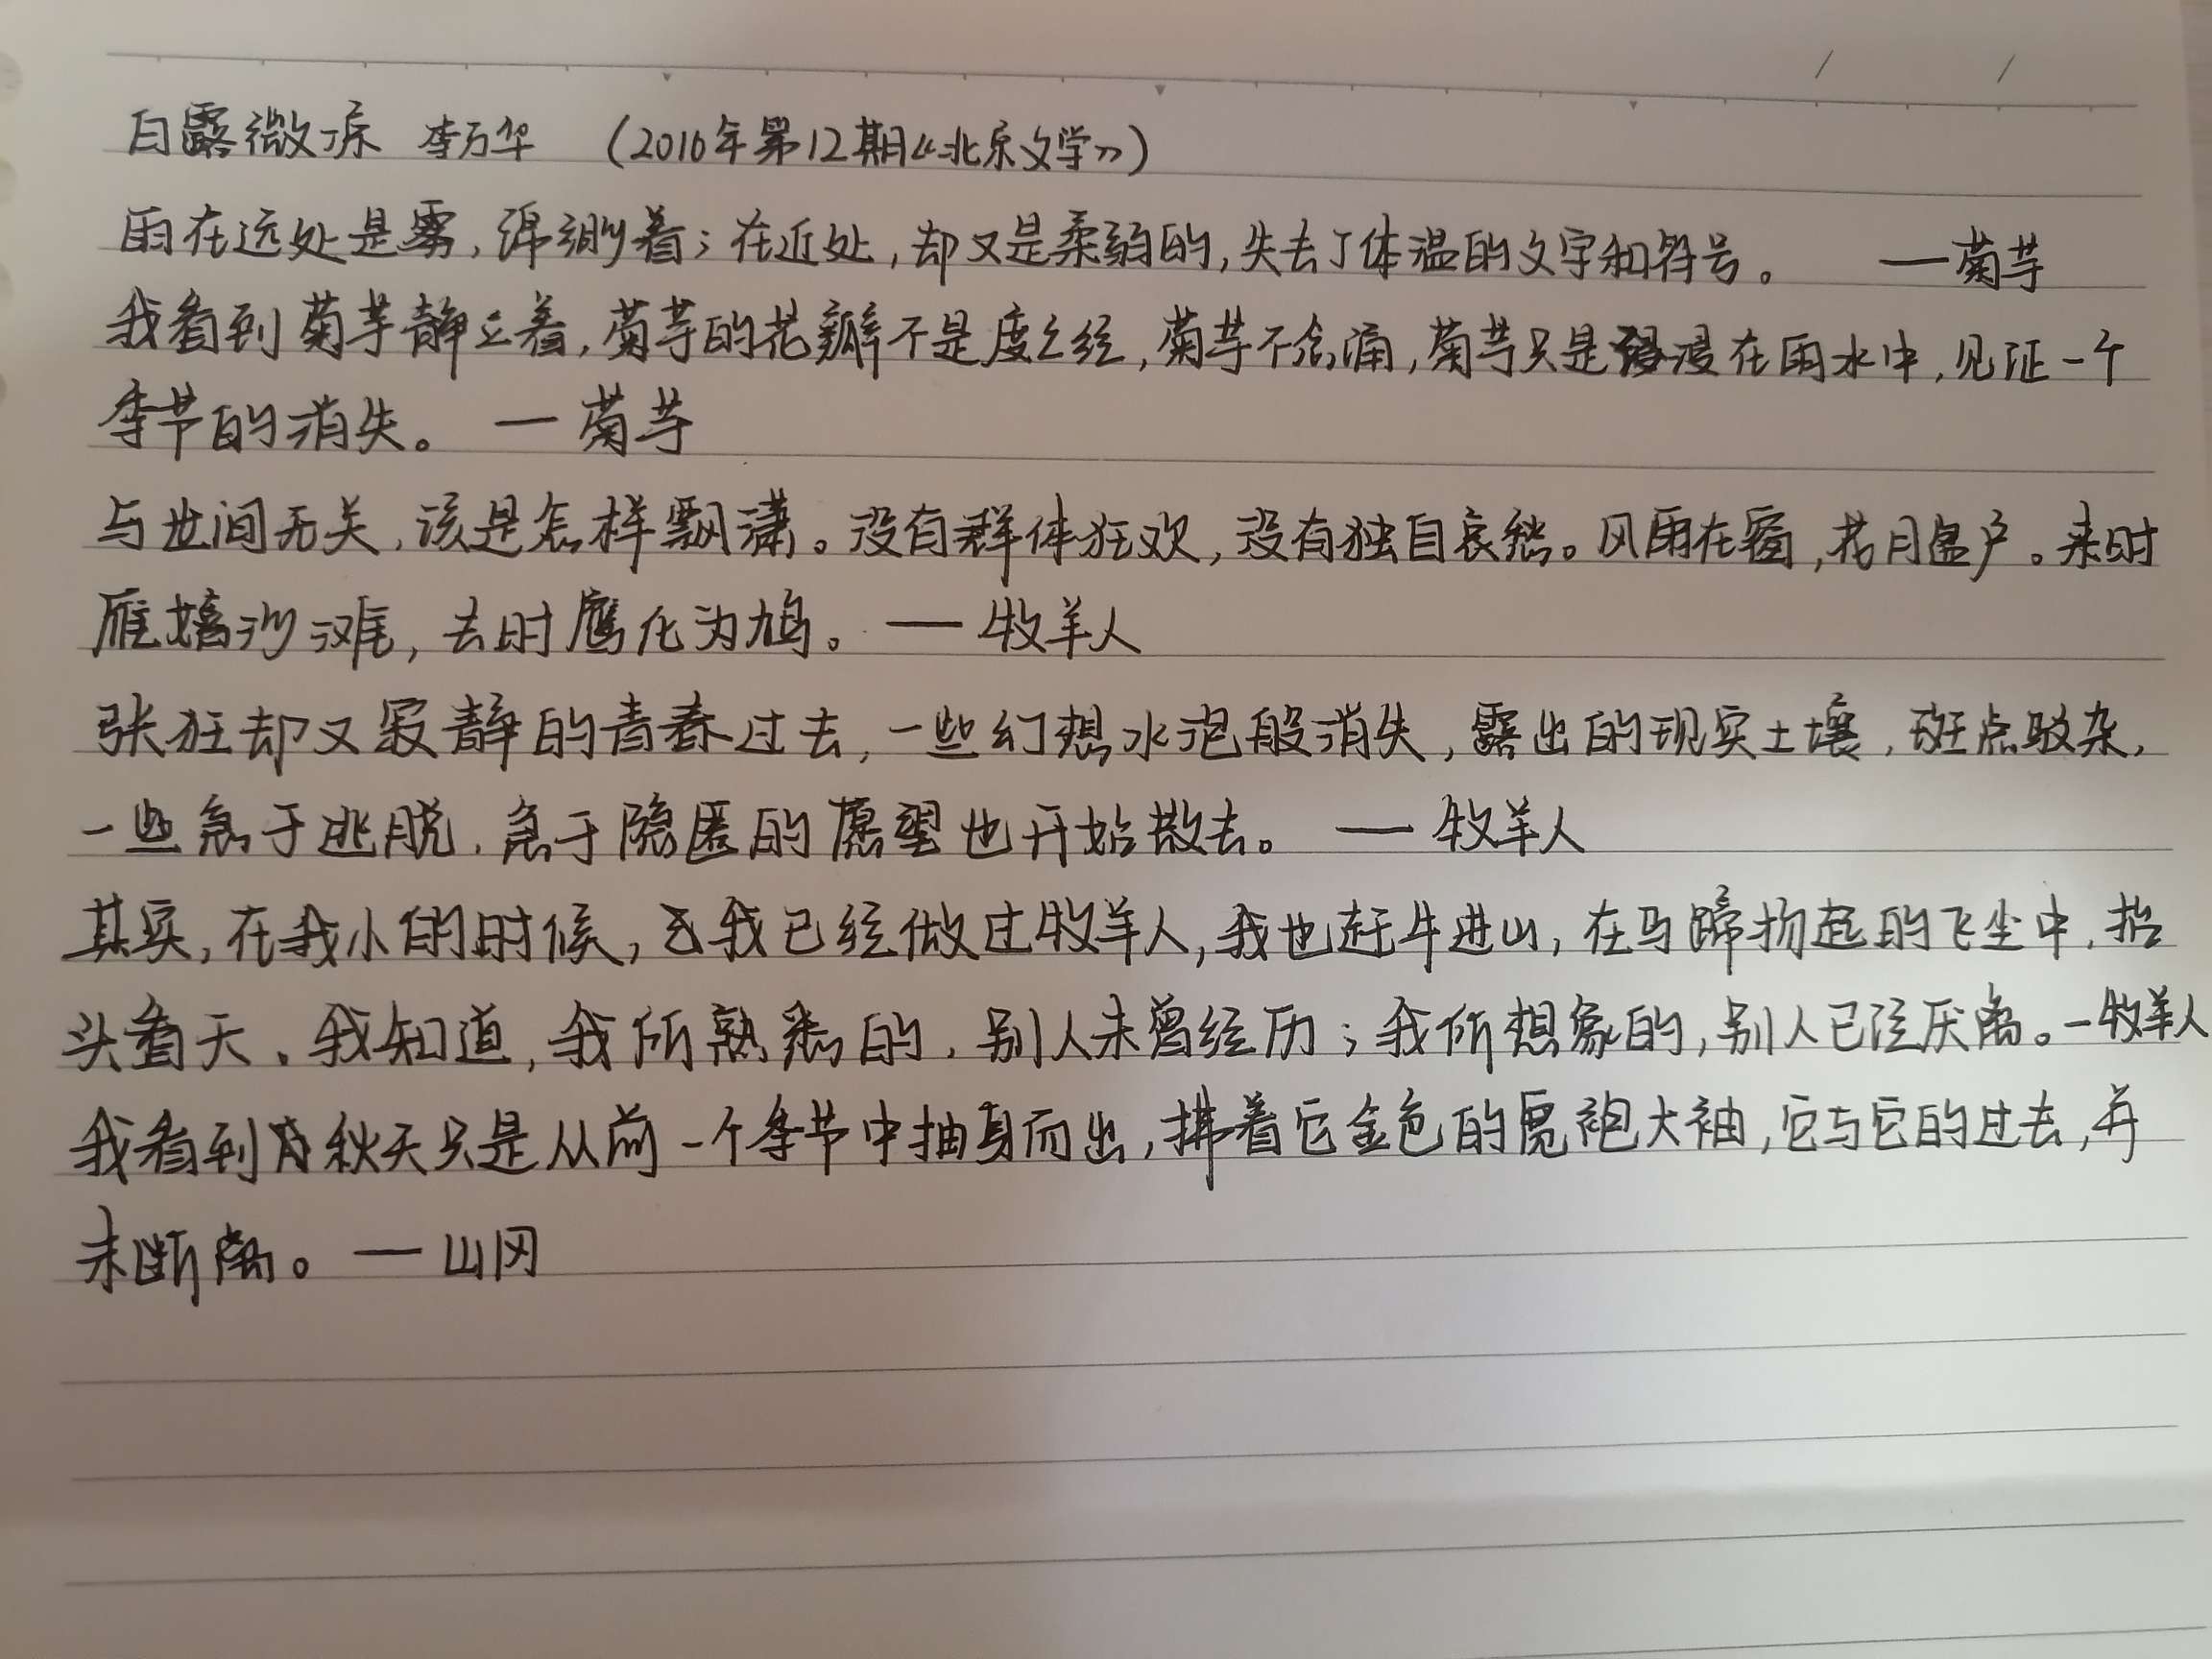 白露微凉 李万华 （2016年第12期《北京文学》）
雨在远处是雾，绵渺着；在近处，却又是柔弱的，失去了体温的文字和符号。 —菊芋
我看到菊芋静立着，菊芋的花瓣不是度之经，菊芋不念诵，菊芋只是浸在雨水中，见证一个
季节的消失。 — 菊芋
与世间无关，该是怎样飘潇。没有群体狂欢，没有独自哀愁。风雨在窗，花月盈户。来时
雁堵沙滩，去时鹰化为鸠。 — 牧羊人
张狂却又寂静的青春过去，一些幻想水泡般消失，露出的现实土壤，斑点驳杂，
一些急于逃脱，急于隐匿的愿望也开始散去。 — 牧羊人
其实，在我小的时候，我已经做过牧羊人，我也赶牛进山，在马蹄扬起的飞尘中，抬
头看天。我知道，我所熟悉的，别人未曾经历；我所想象的，别人已经厌离。—牧羊人
我看到秋天只是从前一个季节中抽身而出，拂着它金色的宽袍大袖，它与它的过去，并
未断离。 — 山冈